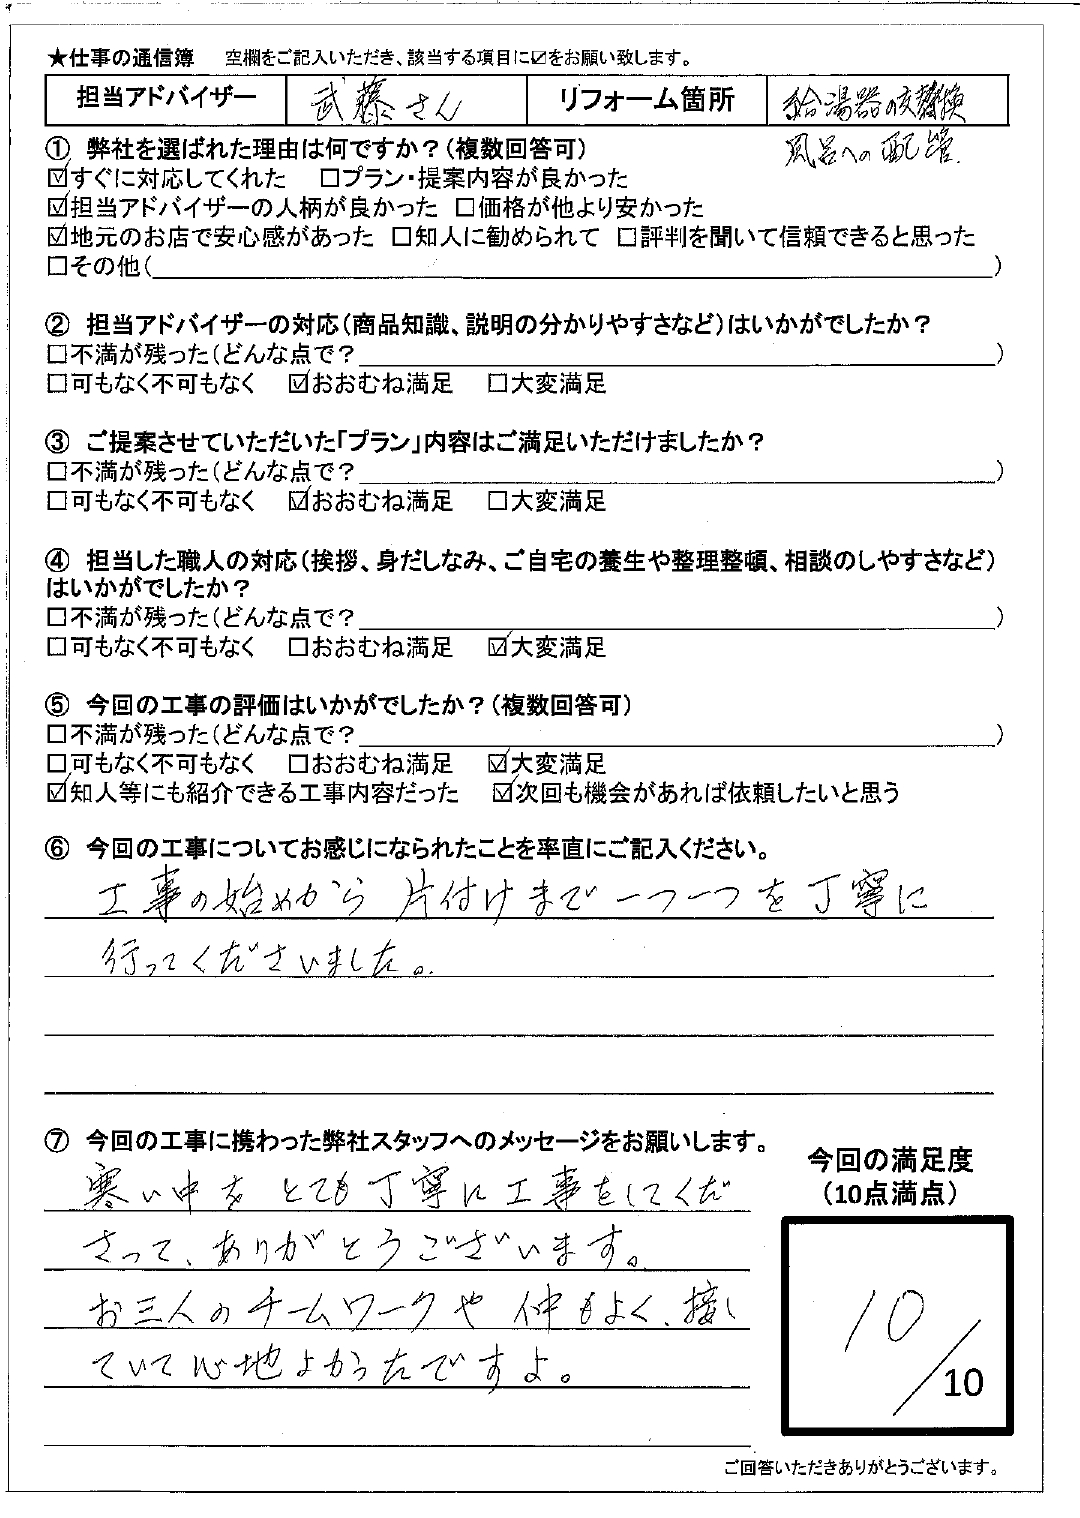 ★仕事の通信簿　空欄をご記入いただき、該当する項目に☑をお願い致します。
担当アドバイザー　武藤さん　リフォーム箇所　給湯器の交換
風呂への配管
① 弊社を選ばれた理由は何ですか？（複数回答可）
☑すぐに対応してくれた　□プラン・提案内容が良かった
☑担当アドバイザーの人柄が良かった　□価格が他より安かった
☑地元のお店で安心感があった　□知人に勧められて　□評判を聞いて信頼できると思った
□その他（　）
② 担当アドバイザーの対応（商品知識、説明の分かりやすさなど）はいかがでしたか？
□不満が残った（どんな点で？　）
□可もなく不可もなく　☑おおむね満足　□大変満足
③ ご提案させていただいた「プラン」内容はご満足いただけましたか？
□不満が残った（どんな点で？　）
□可もなく不可もなく　☑おおむね満足　□大変満足
④ 担当した職人の対応（挨拶、身だしなみ、ご自宅の養生や整理整頓、相談のしやすさなど）
はいかがでしたか？
□不満が残った（どんな点で？　）
□可もなく不可もなく　□おおむね満足　☑大変満足
⑤ 今回の工事の評価はいかがでしたか？（複数回答可）
□不満が残った（どんな点で？　）
□可もなく不可もなく　□おおむね満足　☑大変満足
☑知人等にも紹介できる工事内容だった　☑次回も機会があれば依頼したいと思う
⑥ 今回の工事についてお感じになられたことを率直にご記入ください。
工事の始めから片付けまで一つ一つを丁寧に
行ってくださいました。
⑦ 今回の工事に携わった弊社スタッフへのメッセージをお願いします。
寒い中をとても丁寧に工事をしてくだ
さって、ありがとうございます。
お三人のチームワークや仲もよく、接し
ていて心地よかったですよ。
今回の満足度
（10点満点）
10／10
ご回答いただきありがとうございます。